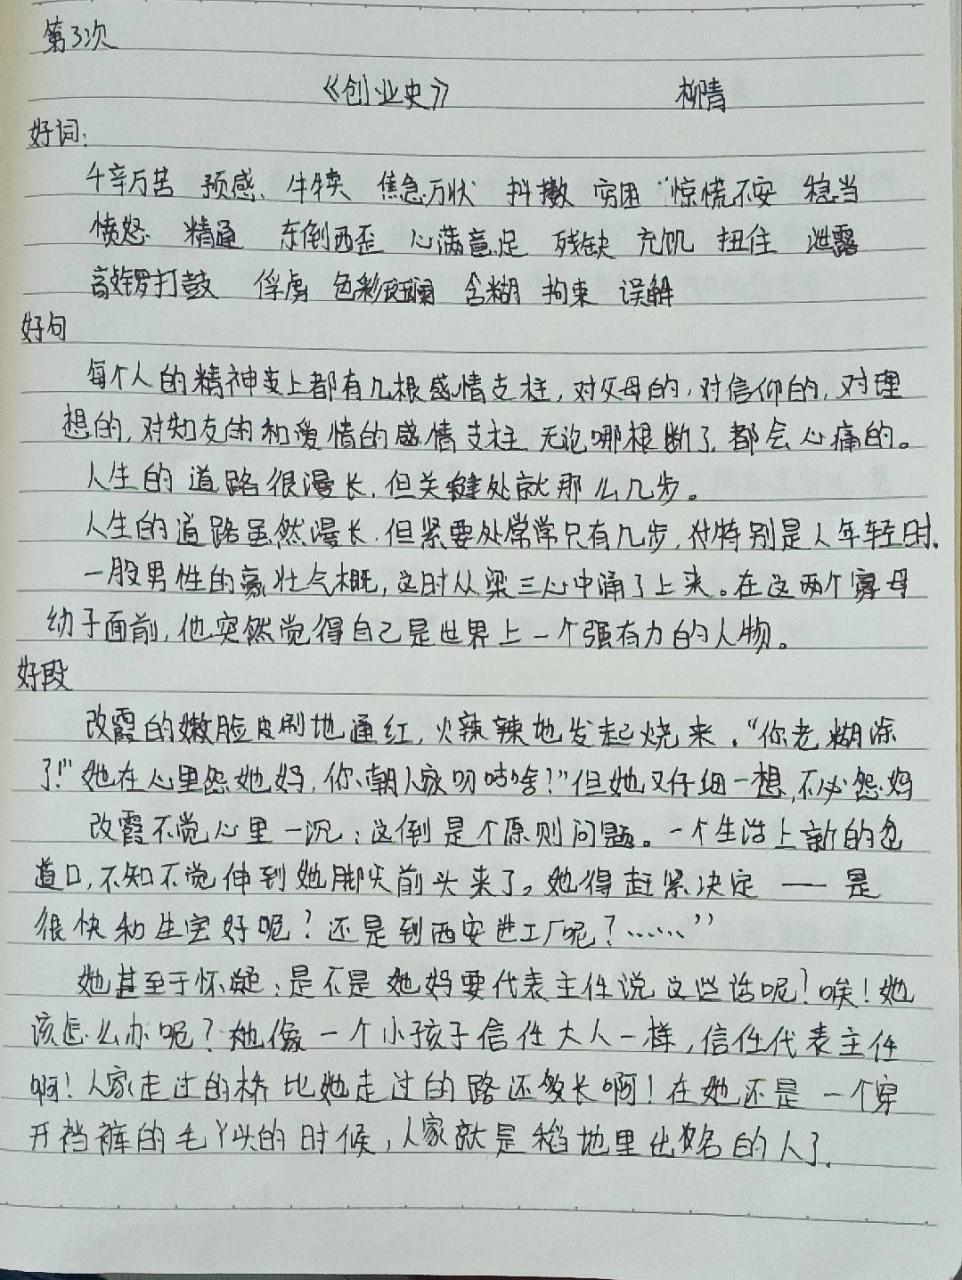 第3次
《创业史》 柳青
好词:
千辛万苦 预感、牛犊 焦急万状 抖擞 穷困 惊慌不安 稳当
愤怒 精通 东倒西歪 心满意足 残缺 充饥 扭住 泄露
敲锣打鼓 俘虏 色彩斑斓 含糊 拘束 误解
好句
每个人的精神支上都有几根感情支柱,对父母的,对信仰的,对理
想的,对知友的和爱情的感情支柱 无论哪根断了,都会心痛的。
人生的道路很漫长,但关键处就那么几步。
人生的道路虽然漫长,但紧要处常常只有几步,特别是人年轻时.
一股男性的豪壮气概,这时从梁三心中涌了上来。在这两个寡母
幼子面前,他突然觉得自己是世界上一个强有力的人物。
好段
改霞的嫩脸皮刷地通红,火辣辣地发起烧来。“你老糊涂
了!”她在心里怨她妈,你朝人家叨咕啥?”但她又仔细一想,不必怨妈
改霞不觉心里一沉:这倒是个原则问题。一个生活上新的岔
道口,不知不觉伸到她脚尖前头来了。她得赶紧决定——是
很快和生宝好呢?还是到西安进工厂呢?……”
她甚至于怀疑:是不是她妈要代表主任说这些话呢?唉!她
该怎么办呢?她像一个小孩子信任大人一样,信任代表主任
啊!人家走过的桥比她走过的路还要长啊!在她还是一个穿
开裆裤的毛丫头的时候,人家就是稻地里出名的人了.